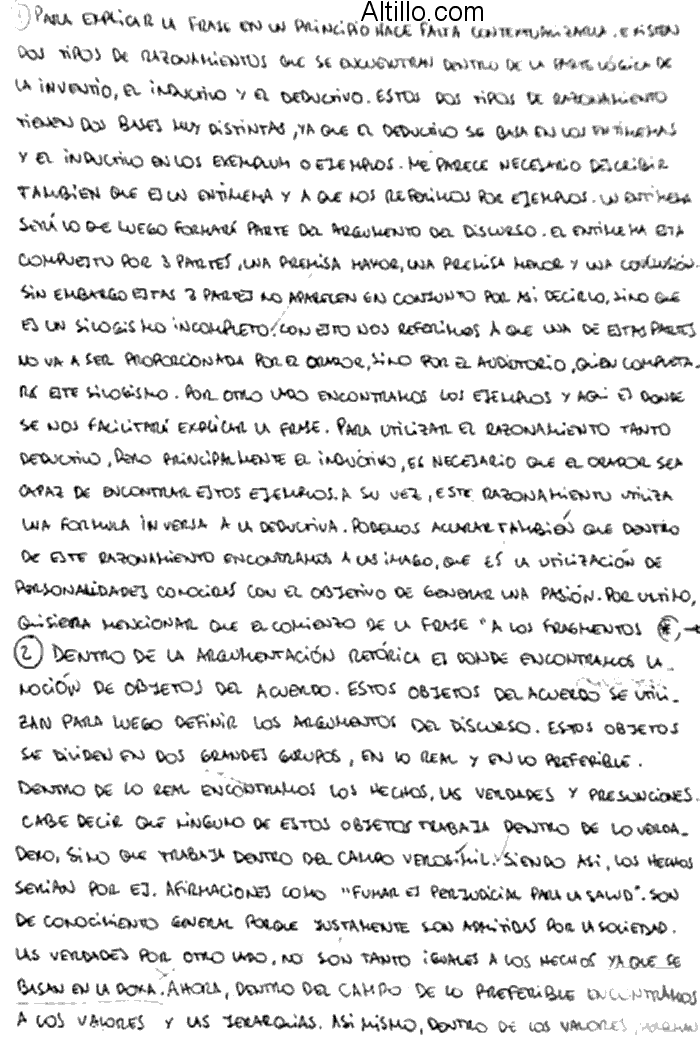 Altillo.com
1) PARA EXPLICAR LA FRASE EN UN PRINCIPIO HACE FALTA CONTEXTUALIZARLA. EXISTEN
DOS TIPOS DE RAZONAMIENTOS QUE SE ENCUENTRAN DENTRO DE LA PARTE LÓGICA DE
LA INVENTIO, EL INDUCTIVO Y EL DEDUCTIVO. ESTOS DOS TIPOS DE RAZONAMIENTO
TIENEN DOS BASES MUY DISTINTAS, YA QUE EL DEDUCTIVO SE BASA EN LOS ENTIMEMAS
Y EL INDUCTIVO EN LOS EXEMPLUM O EJEMPLOS. ME PARECE NECESARIO DESCRIBIR
TAMBIEN QUE ES UN ENTIMEMA Y A QUE NOS REFERIMOS POR EJEMPLOS. UN ENTIMEMA
SERÍA LO QUE LUEGO FORMARÁ PARTE DEL ARGUMENTO DEL DISCURSO. EL ENTIMEMA ESTA
COMPUESTO POR 3 PARTES, UNA PREMISA MAYOR, UNA PREMISA MENOR Y UNA CONCLUSIÓN.
SIN EMBARGO ESTAS 3 PARTES NO APARECEN EN CONJUNTO POR ASI DECIRLO, SINO QUE
ES UN SILOGISMO INCOMPLETO. CON ESTO NOS REFERIMOS A QUE UNA DE ESTAS PARTES
NO VA A SER PROPORCIONADA POR EL ORADOR, SINO POR EL AUDITORIO, QUIEN COMPLETA-
RÁ ESTE SILOGISMO. POR OTRO LADO ENCONTRAMOS LOS EJEMPLOS Y AQUI ES DONDE
SE NOS FACILITARÁ EXPLICAR LA FRASE. PARA UTILIZAR EL RAZONAMIENTO TANTO
DEDUCTIVO, PERO PRINCIPALMENTE EL INDUCTIVO, ES NECESARIO QUE EL ORADOR SEA
CAPAZ DE ENCONTRAR ESTOS EJEMPLOS. A SU VEZ, ESTE RAZONAMIENTO UTILIZA
UNA FORMULA INVERSA A LA DEDUCTIVA. PODEMOS ACLARAR TAMBIÉN QUE DENTRO
DE ESTE RAZONAMIENTO ENCONTRAMOS A LAS IMAGO, QUE ES LA UTILIZACIÓN DE
PERSONALIDADES CONOCIDAS CON EL OBJETIVO DE GENERAR UNA PASIÓN. POR ULTIMO,
QUISIERA MENCIONAR QUE EL COMIENZO DE LA FRASE "A LOS FRAGMENTOS *, →
2) DENTRO DE LA ARGUMENTACIÓN RETÓRICA ES DONDE ENCONTRAMOS LA
NOCIÓN DE OBJETOS DEL ACUERDO. ESTOS OBJETOS DEL ACUERDO SE UTILI-
ZAN PARA LUEGO DEFINIR LOS ARGUMENTOS DEL DISCURSO. ESTOS OBJETOS
SE DIVIDEN EN DOS GRANDES GRUPOS, EN LO REAL Y EN LO PREFERIBLE.
DENTRO DE LO REAL ENCONTRAMOS LOS HECHOS, LAS VERDADES Y PRESUNCIONES.
CABE DECIR QUE NINGUNO DE ESTOS OBJETOS TRABAJA DENTRO DE LO VERDA-
DERO, SINO QUE TRABAJA DENTRO DEL CAMPO VEROSIMIL. SIENDO ASI, LOS HECHOS
SERIAN POR EJ. AFIRMACIONES COMO "FUMAR ES PERJUDICIAL PARA LA SALUD". SON
DE CONOCIMIENTO GENERAL PORQUE JUSTAMENTE SON ADMITIDAS POR LA SOCIEDAD.
LAS VERDADES POR OTRO LADO, NO SON TANTO IGUALES A LOS HECHOS YA QUE SE
BASAN EN LA DOXA. AHORA, DENTRO DEL CAMPO DE LO PREFERIBLE ENCONTRAMOS
A LOS VALORES Y LAS JERARQUIAS. ASI MISMO, DENTRO DE LOS VALORES,